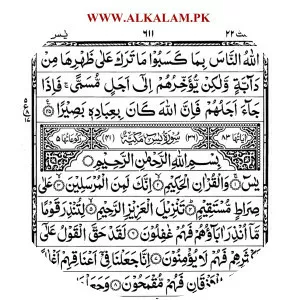 WWW.ALKALAM.PK
يٰسٓ ٦١١ ٢٢
اللهُ النَّاسَ بِمَا كَسَبُوْا مَا تَرَكَ عَلٰى ظَهْرِهَا مِنْ
دَآبَّةٍ وَّلٰكِنْ يُّؤَخِّرُهُمْ اِلٰٓى اَجَلٍ مُّسَمًّى ۚ فَاِذَا
جَآءَ اَجَلُهُمْ فَاِنَّ اللهَ كَانَ بِعِبَادِهٖ بَصِيْرًا ﴿٤٥﴾
اٰيَاتُهَا ٨٣ (٣٦) سُوْرَةُ يٰسٓ مَكِّيَّةٌ (٤١) رُكُوْعَاتُهَا ٥
بِسْمِ اللهِ الرَّحْمٰنِ الرَّحِيْمِ
يٰسٓ ۚ وَالْقُرْاٰنِ الْحَكِيْمِ ۙ اِنَّكَ لَمِنَ الْمُرْسَلِيْنَ ۙ عَلٰى
صِرَاطٍ مُّسْتَقِيْمٍ ؕ تَنْزِيْلَ الْعَزِيْزِ الرَّحِيْمِ ۙ لِتُنْذِرَ قَوْمًا
مَّاۤ اُنْذِرَ اٰبَآؤُهُمْ فَهُمْ غٰفِلُوْنَ لَقَدْ حَقَّ الْقَوْلُ عَلٰٓى
اَكْثَرِهِمْ فَهُمْ لَا يُؤْمِنُوْنَ اِنَّا جَعَلْنَا فِيْٓ اَعْنَاقِهِمْ
الْاَذْقَانِ فَهُمْ مُّقْمَحُوْنَ وَجَعَلْنَا